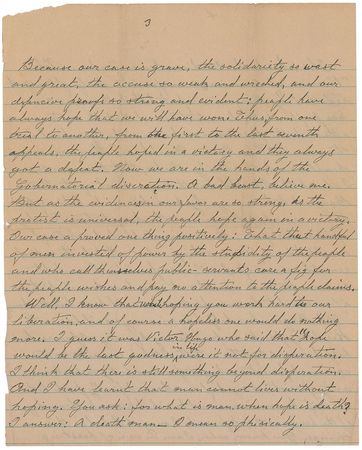 3
Because our case is grave, the solidariety so wast
and great, the accuse so weak and wreched, and our
defencive proofs so strong and evident; people have
always hope that we will have won. Thus, from one
trial to another, from the first to the last seventh
appeals, the people hoped in a victory and they always
got a defeat. Now we are in the hands of the
Gobernatorial discration. A bad boast, believe me.
But as the evidences in our favor are so strong, as the
protest is universal, the people hope again in a victory.
Our case a proved one thing positively: That that handful
of men invested of power by the stupidity of the people
and who call themselves public-servants care a fig for
the people wishes and pay no attention to the people claims.
Well, I know that hoping you work hard our
liberation, and of course a hopeless one would do nothing
more. I guess it was Victor Hugo who said that hope
would be the last godness in life, were it not for disperation.
I think that there is still something beyond disperation.
And I have learnt that man cannot lives without
hoping. You ask: for what is man, when hope is death?
I answer: A death man — I mean so phisically.